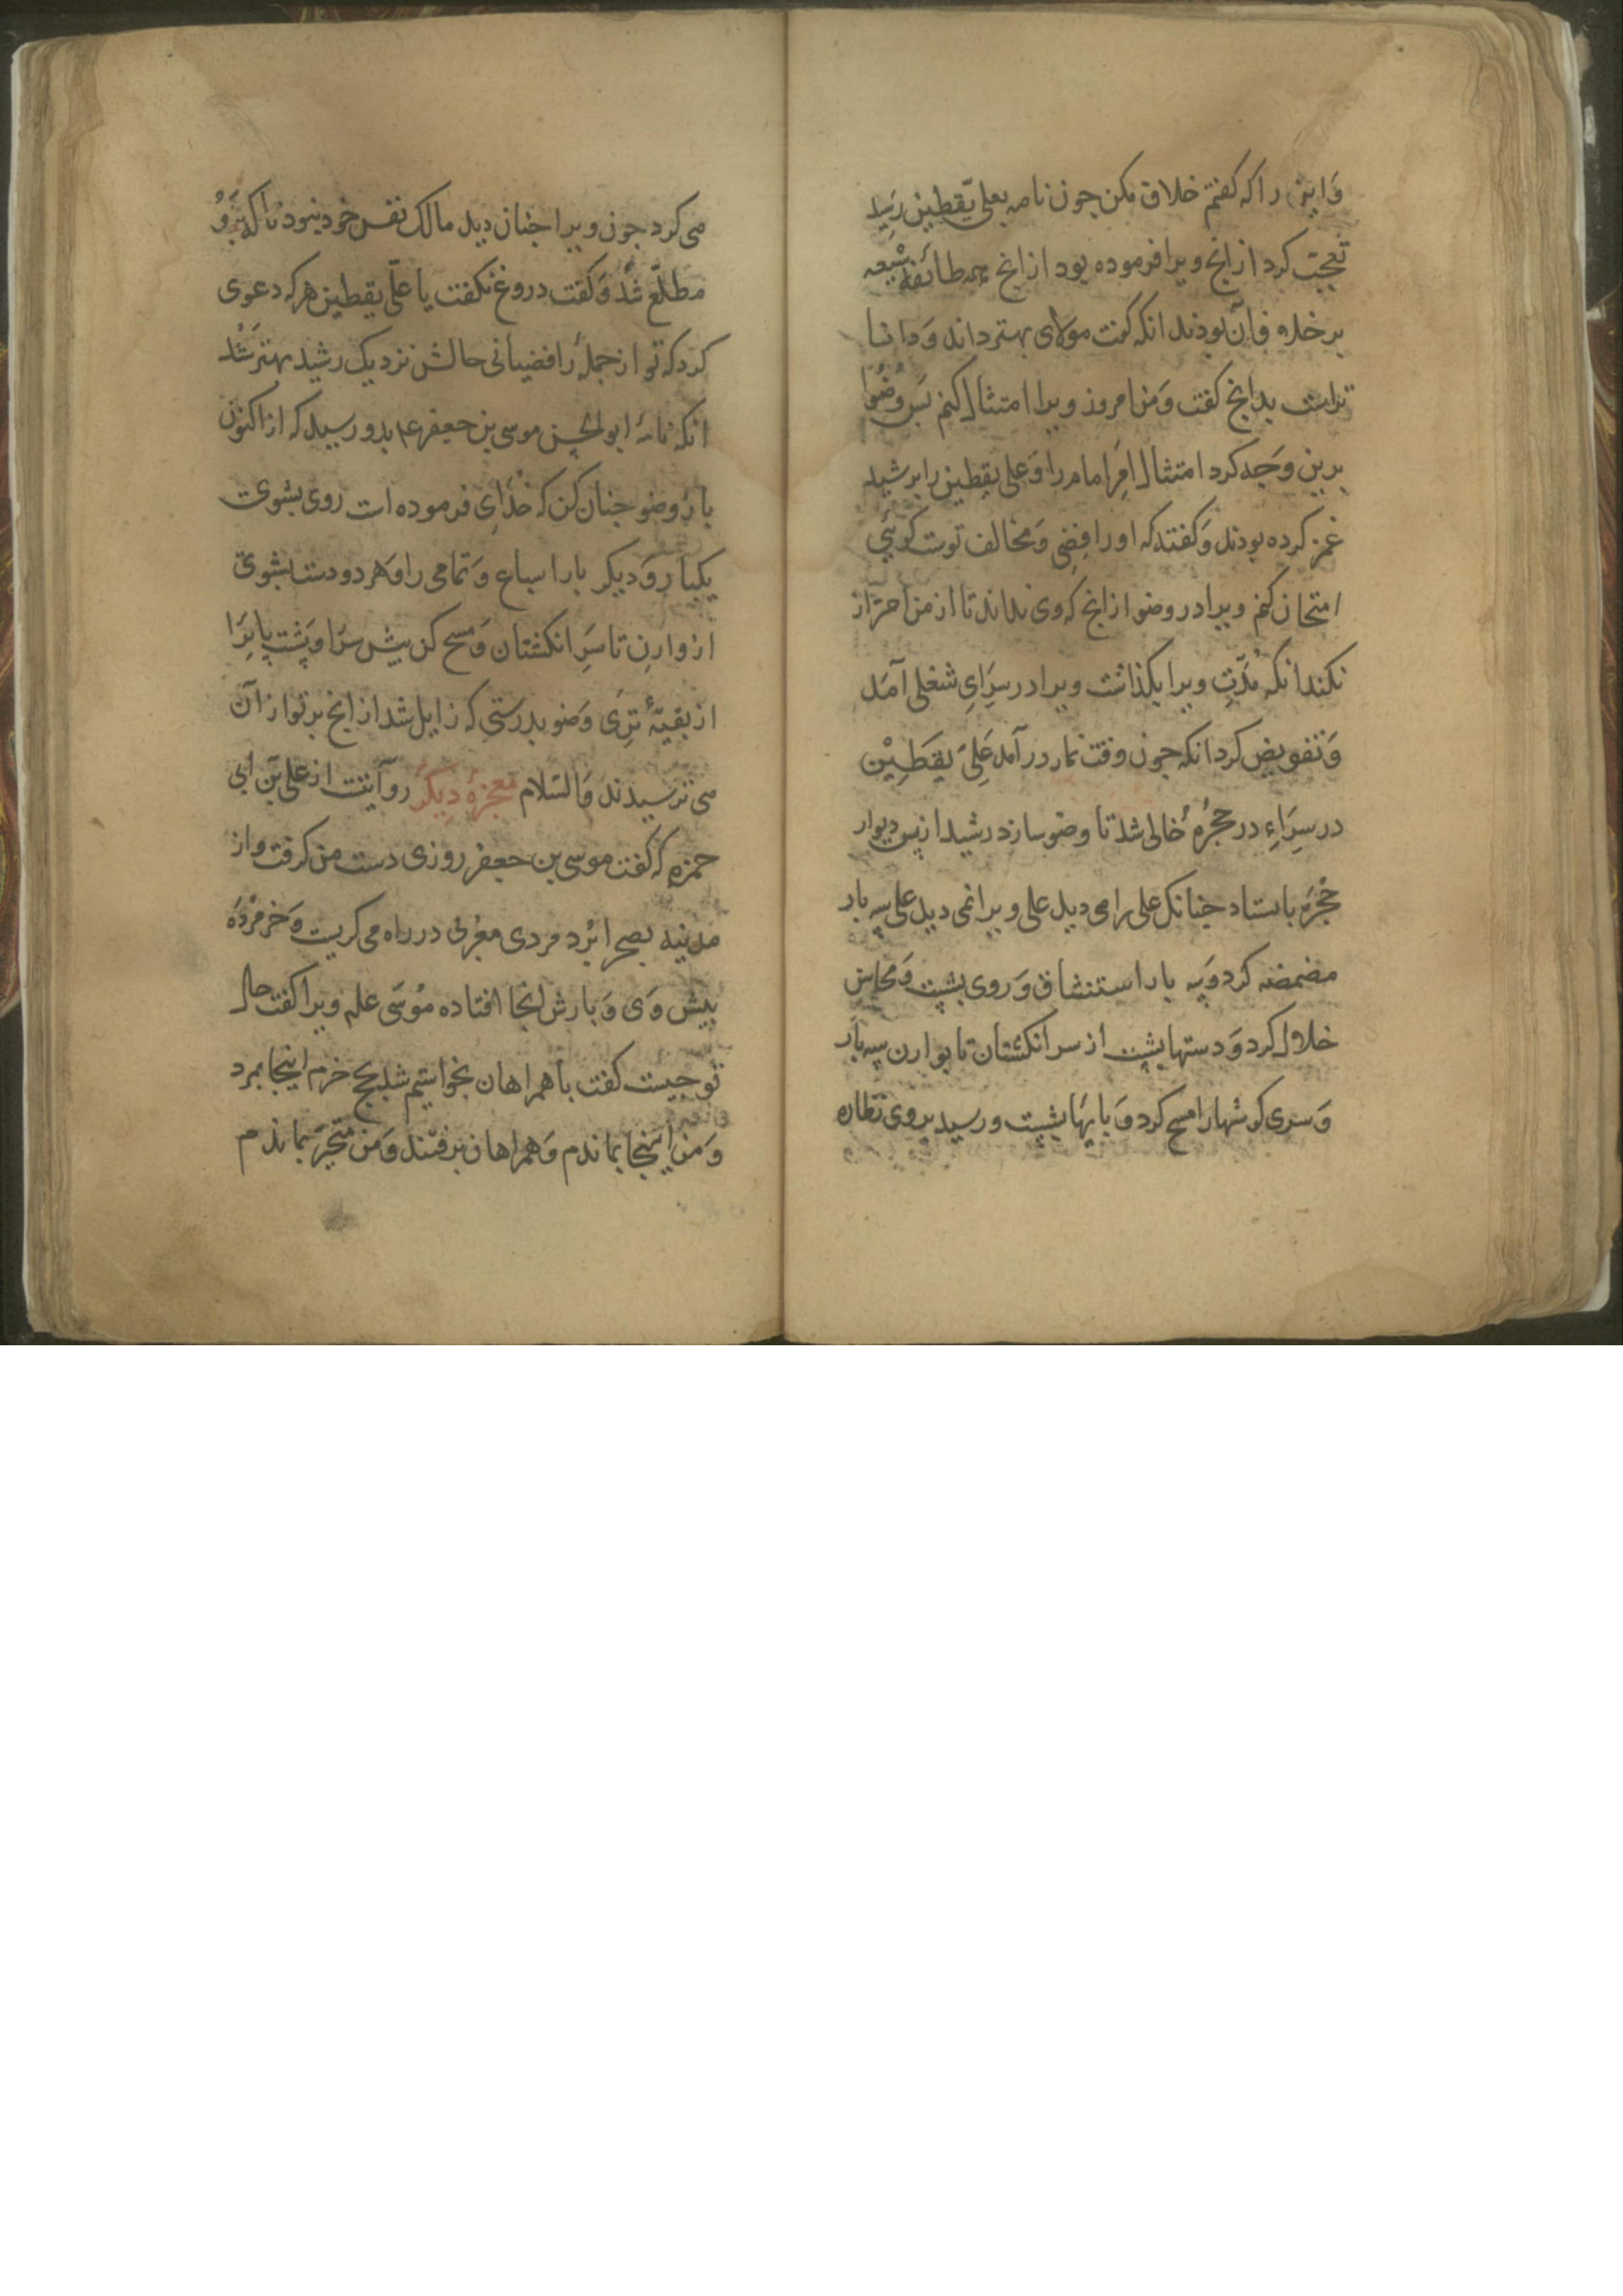 وَاین را که کفتم خلاف مکن جون نامه بعلی یقطین رَسِید
تعجّب کرد از انج ویرا فرموده بود از انج همه طائفهٔ شیعه
بر خلاف آن بوذند انکه کفت مولای بهتر داند وَدانا
تراست بدانج کفت وَمن امروز ویرا امتثال کنم بَس وُضوُا
برین وَجه کرد امتثال امَرِ امام را وَعلی یقطین را بر شید
غمز کرده بودند وَکفتند که او رافِضِی وَمخالف توست کوئیی
امتحان کنم ویرا در وضو از انج که وی نداند تا از من احتراز
نکند انکه مُدّتِ ویرا بکذاشت ویرا در سرَایِ شغلی آمَد
وَتفویض کرد انکه جون وقت نماز در آمد عَلِیّ یقَطِیْن
در سرَاءِ در حجُرهٔ خالی شد تا وضو سازد رشید از پس دیوار
حُجْرَه باستاد جنانک علی را می دید علی ویرا نمی دید علی سه بار
مضمضه کرد وَسه بار استنشاق وَروی بشست وَمحاسن
خلال کرد وَدستها بشست از سر انکشتان تا بوارن سه بار
وَسر وکوشهارا مسح کرد وَبایهَا بشست و رسید بروی نظاره
می کرد جون ویرا جنان دید مالک نفس خود نبود تا که بَرَوُ
مطلّع شُذ وَکفت دروغ نکفت یا علّی یقطین هر که دعوی
کرد که تو از جملهٔ رافضیانی حالش نزدیک رشید بهتر شَذ
انکه نامهٔ ابو الحسن موسی بن جعفر ع بدو رسید که از اکنون
باز وضو جنان کن که خذَایِ فرموده است روی بشوی
یکبار وَدیکر بار اسباع وَتمامی را وَهر دو دست بشوی
از وارن تا سَرِ انکشتان وَمسح کن بیش سرَا وَپُشت پایرَا
از بقیّهٔ ترَی وَضو بدرستی که زایل شد از انج بر تو از آن
می ترسیدند وَالسّلام معجزهٔ دِیکَر روآیتست از علی بّن ابی
حمزه که کفت موسی بن جعفر روزی دست من کرفت واز
مدنیه بصحرا بُرد مردی مغُربی در راه می کریست وَخر مُرْدَه
بیش وَی وَبارش انجا افتاده مُوسَی علم ویرا کفت حال
تو جیست کفت با همراهان بخواستم شد بحج خرم اینجا بمرد
وَمن اینجا بماندم وَهمراهان برفتند وَمن متحیّر بماندم